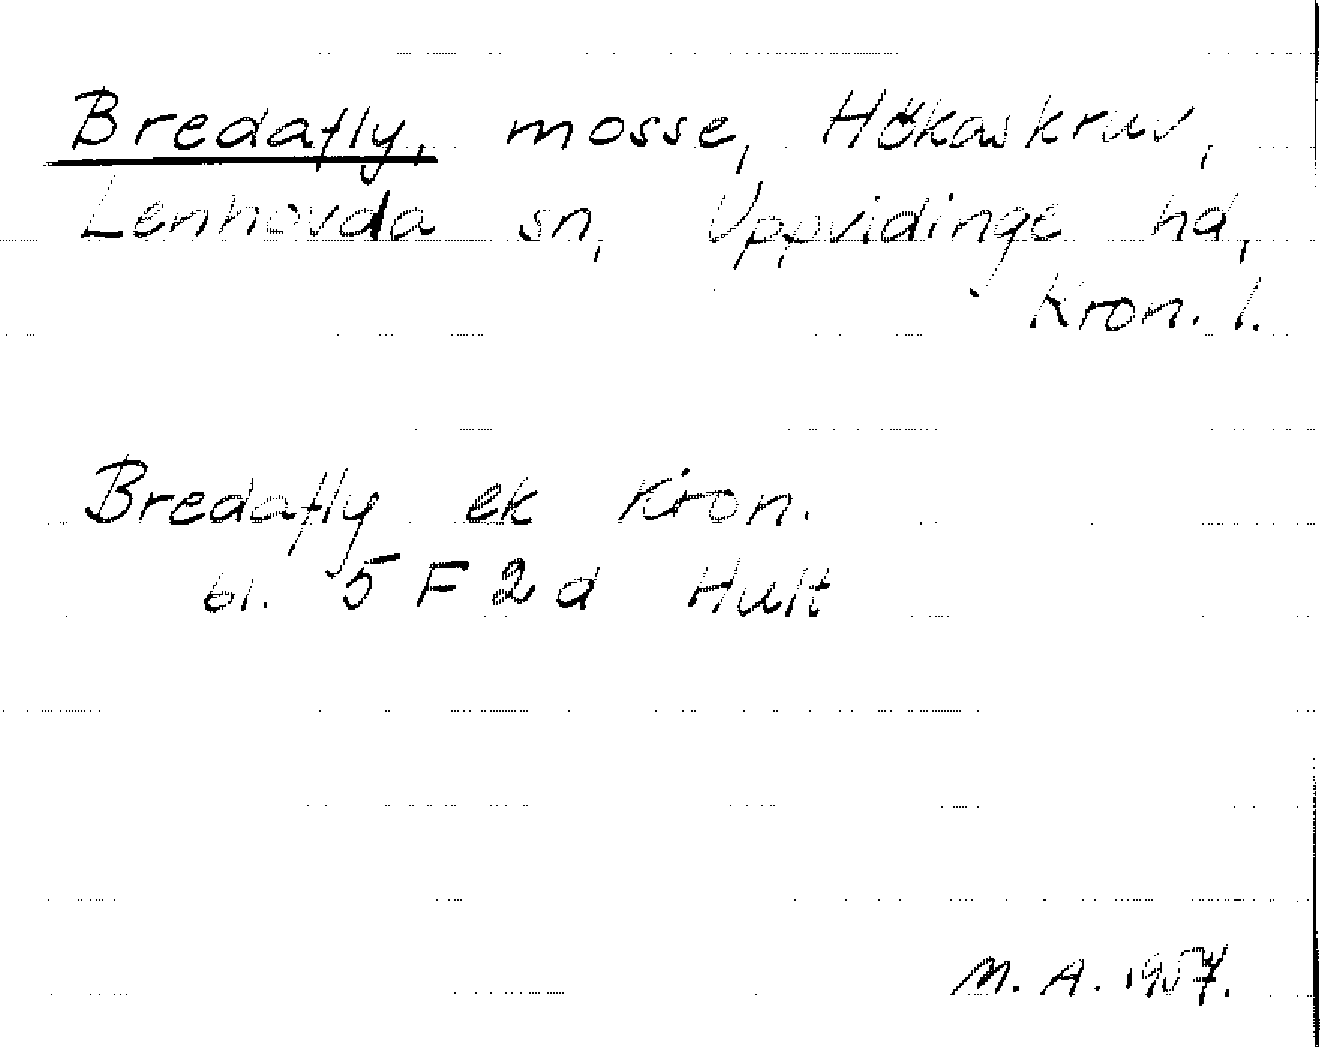 Bredafly, mosse, Hökaskruv,
Lenhovda sn, Uppvidinge hd,
Kron. l.
Bredafly ek Kron.
bl. 5 F 2 d Hult
M. A. 1957.